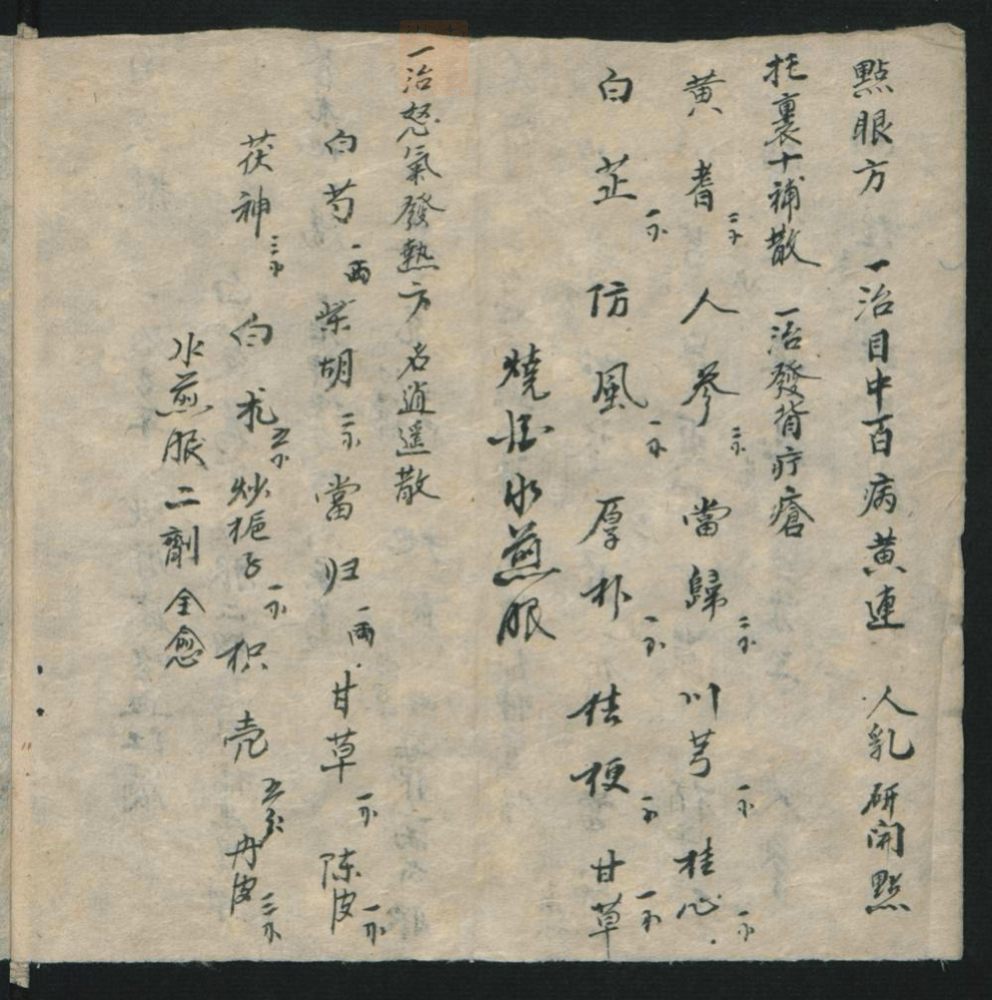 點眼方 一治目中百病黃連 人乳研開點
托裏十補散 一治發背疔瘡
黃耆二下人參二下當歸二下川芎一下桂心一下
白芷一下防風一下厚朴一下佶梗一下甘草一下
燒酒水煎服
一治怒氣發熱方 名逍遥散
白芍一両柴胡二下當归一両甘草一下陈皮一下
茯神三下白朮五下炒梔子一下枳壳五分丹皮三下
水煎服二劑全愈